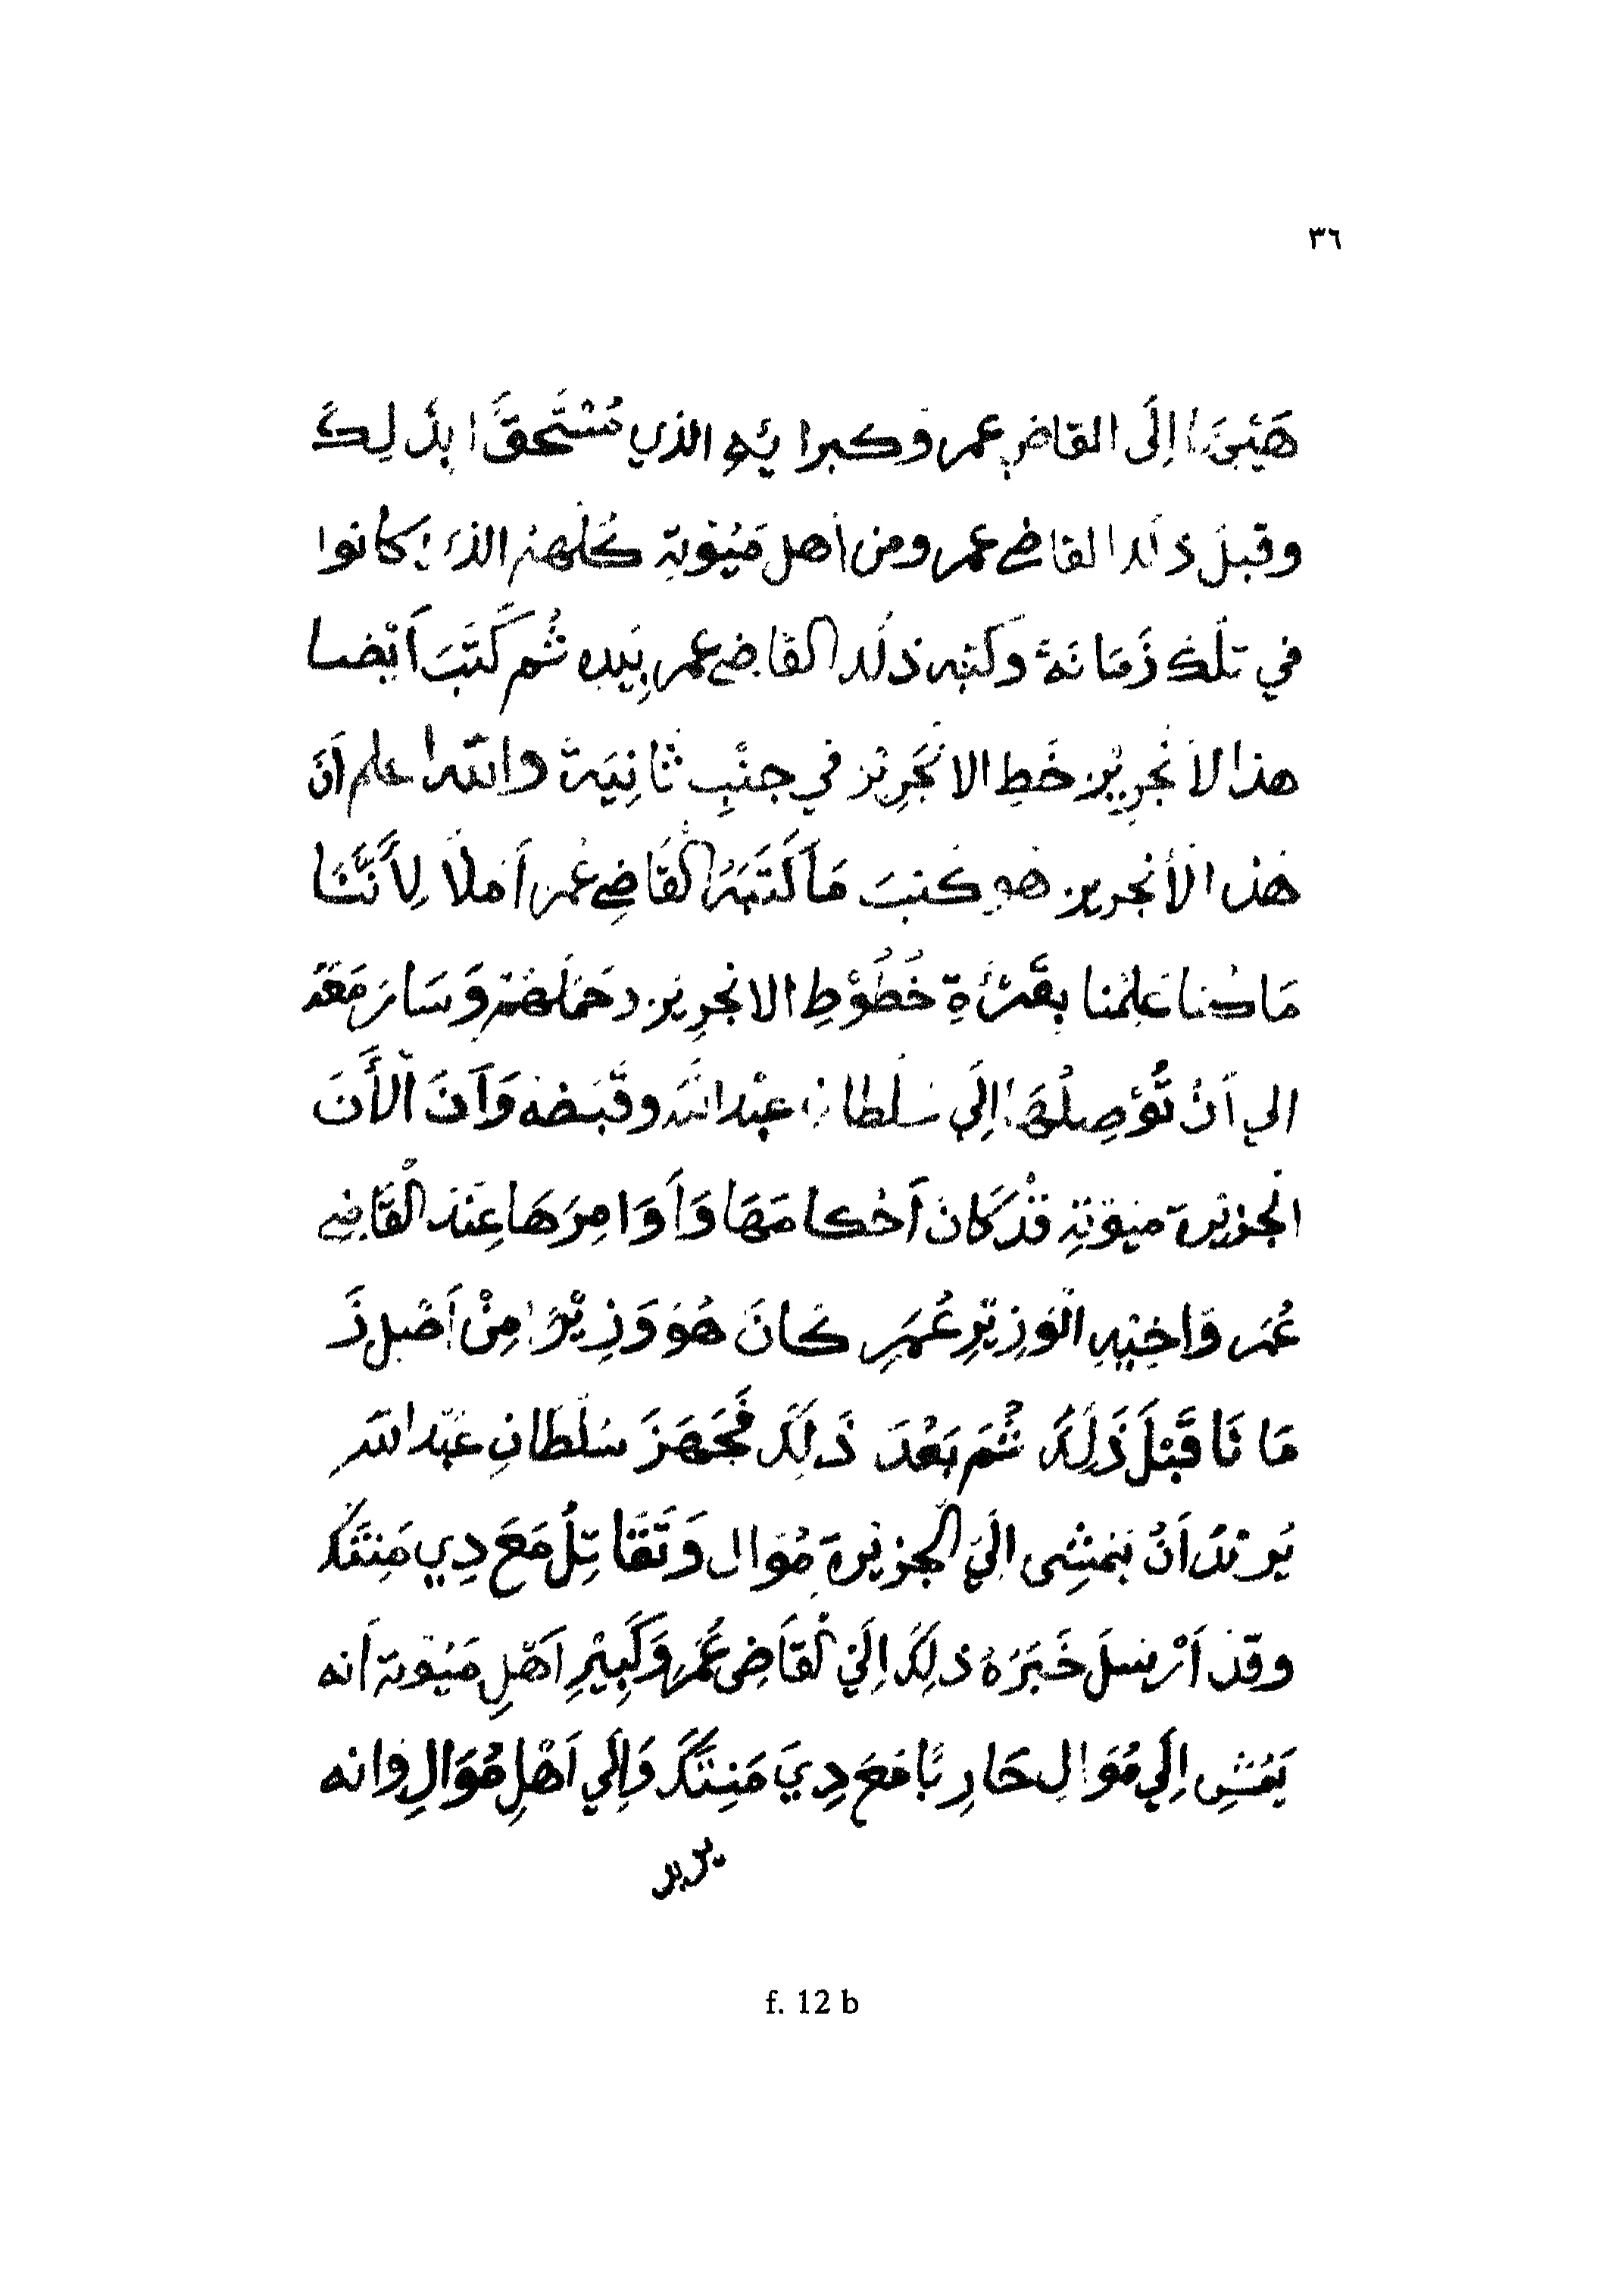 ٣٦
هَيْئَةً إِلَى القاضي عمر وكبرايه الذي مُسْتَحقًّا بِذَلِكَ
وقبلَ ذلك القاضي عمر ومن أهل مَيُوْتِة كُلُّهُمْ الذي كانوا
في تلك زَمَانَهُ وكتبه ذلك القاضي عمر بِيَدِه ثُم كَتَبَ أَيْضا
هذا الأَنْجرِيْز خَطِ الانْجَرِيْز في جنْبِ ثَانِيَةْ والله اعلم أَنَّ
هَذا الْأَنْجريز هو كَتَبَ مَا كَتَبَهُ القَاضِي عُمَر أَمْلًا لِأَنَّنَا
مَا كُنا عَلِمْنا بِقَرْأَةِ خُطُوْطِ الانجرِيْز وحَمَلَهُمْ وَسَارَ مَعَهُ
الي أَنْ تُوْصِلُهَا إِلَي سُلْطان عبْد الله وقَبَضَه وَآنَ الْأَنَ
الجزيرة مَيُوْتِة قَدْ كَانَ أَحْكامَهَا وَأَوَامِرَهَا عِنْدَ القَاضِي
عُمَر وَاخِيْهِ الْوَزِيْرِ عُمَيرِ كَانَ هُوَ وَزِيْرًا مِنْ أَصْلِ زَ
مَانَا قَبْلَ ذَلِكَ ثُمَ بَعْدَ ذَلِكَ فَجَهَزَ سُلْطَانِ عَبْد اللهِ
يُرِيْدُ أَنْ يَمْشِى إِلَيَ الجزيْرة مُوَال وَتَقَاتِلُ مَعَ دِي مَنِتَكَ
وقَدْ أَرْسَلَ خَبَرُهُ ذلِكَ إِلَيَ الْقَاضِى عُمَر وَكَبِيْرِ اَهْلِ مَيُوْتة أنه
يَمْشِي إِلَي مُوَال حَارِبًا مَعَ دِيَ مَنِتَكَ وَإِلَي اَهْلِ مُوَالِ وانه
يريد
f. 12 b